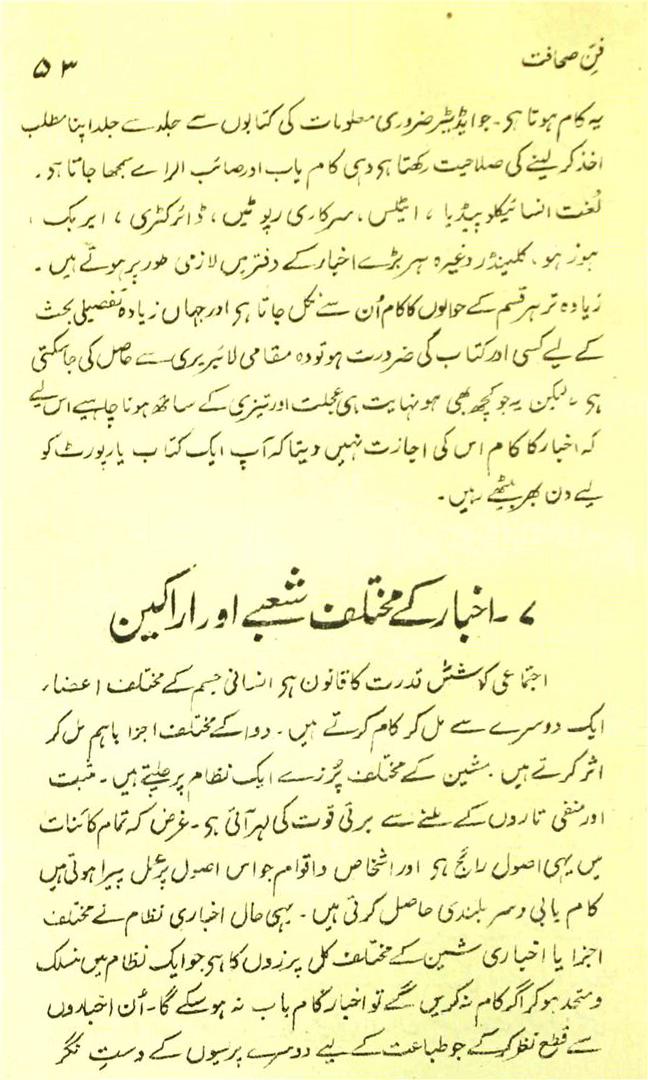 فنِ صحافت
۵۳
یہ کام ہوتا ہی۔ جو ایڈیٹر ضروری معلومات کی کتابوں سے جلد سے جلد اپنا مطلب
اخذ کر لینے کی صلاحیت رکھتا ہی وہی کام یاب اور صائب الراے سمجھا جاتا ہو۔
لغت انسائیکلوپیڈیا، اٹلس، سرکاری رپوٹیں، ڈائرکٹری، ایر بک،
ہوز ہو، کلینڈر وغیرہ ہر بڑے اخبار کے دفتر میں لازمی طور پر ہوتے ہیں۔
زیادہ تر ہر قسم کے حوالوں کا کام اُن سے نکل جاتا ہی اور جہاں زیادہ تفصیلی بحث
کے لیے کسی اور کتاب کی ضرورت ہو تو وہ مقامی لائبریری سے حاصل کی جاسکتی
ہی۔ لیکن یہ جو کچھ بھی ہو نہایت ہی عجلت اور تیزی کے ساتھ ہونا چاہیے اس لیے
کہ اخبار کا کام اس کی اجازت نہیں دیتا کہ آپ ایک کتاب یا رپورٹ کو
لیے دن بھر بیٹھے رہیں۔
۷۔ اخبار کے مختلف شعبے اور اراکین
اجتماعی کوشش قدرت کا قانون ہی انسانی جسم کے مختلف اعضاء
ایک دوسرے سے مل کر کام کرتے ہیں۔ دوا کے مختلف اجزا باہم مل کر
اثر کرتے ہیں۔ مشین کے مختلف پُرزے ایک نظام پر چلتے ہیں۔ مثبت
اور منفی تاروں کے ملنے سے برقی قوت کی لہر آئی ہی۔ غرض کہ تمام کائنات
میں یہی اصول رائج ہی اور اشخاص و اقوام جو اس اصول پر عمل پیرا ہوتی ہیں
کام یابی و سر بلندی حاصل کرتی ہیں۔ یہی حال اخباری نظام نے مختلف
اجزا یا اخباری مشین کے مختلف کل پرزوں کا ہی جو ایک نظام میں منسلک
و متحد ہو کر اگر کام نہ کریں گے تو اخبار کام یاب نہ ہو سکے گا۔ اُن اخباروں
سے قطع نظر کر کے جو طباعت کے لیے دوسرے پرسیوں کے دستِ نگر